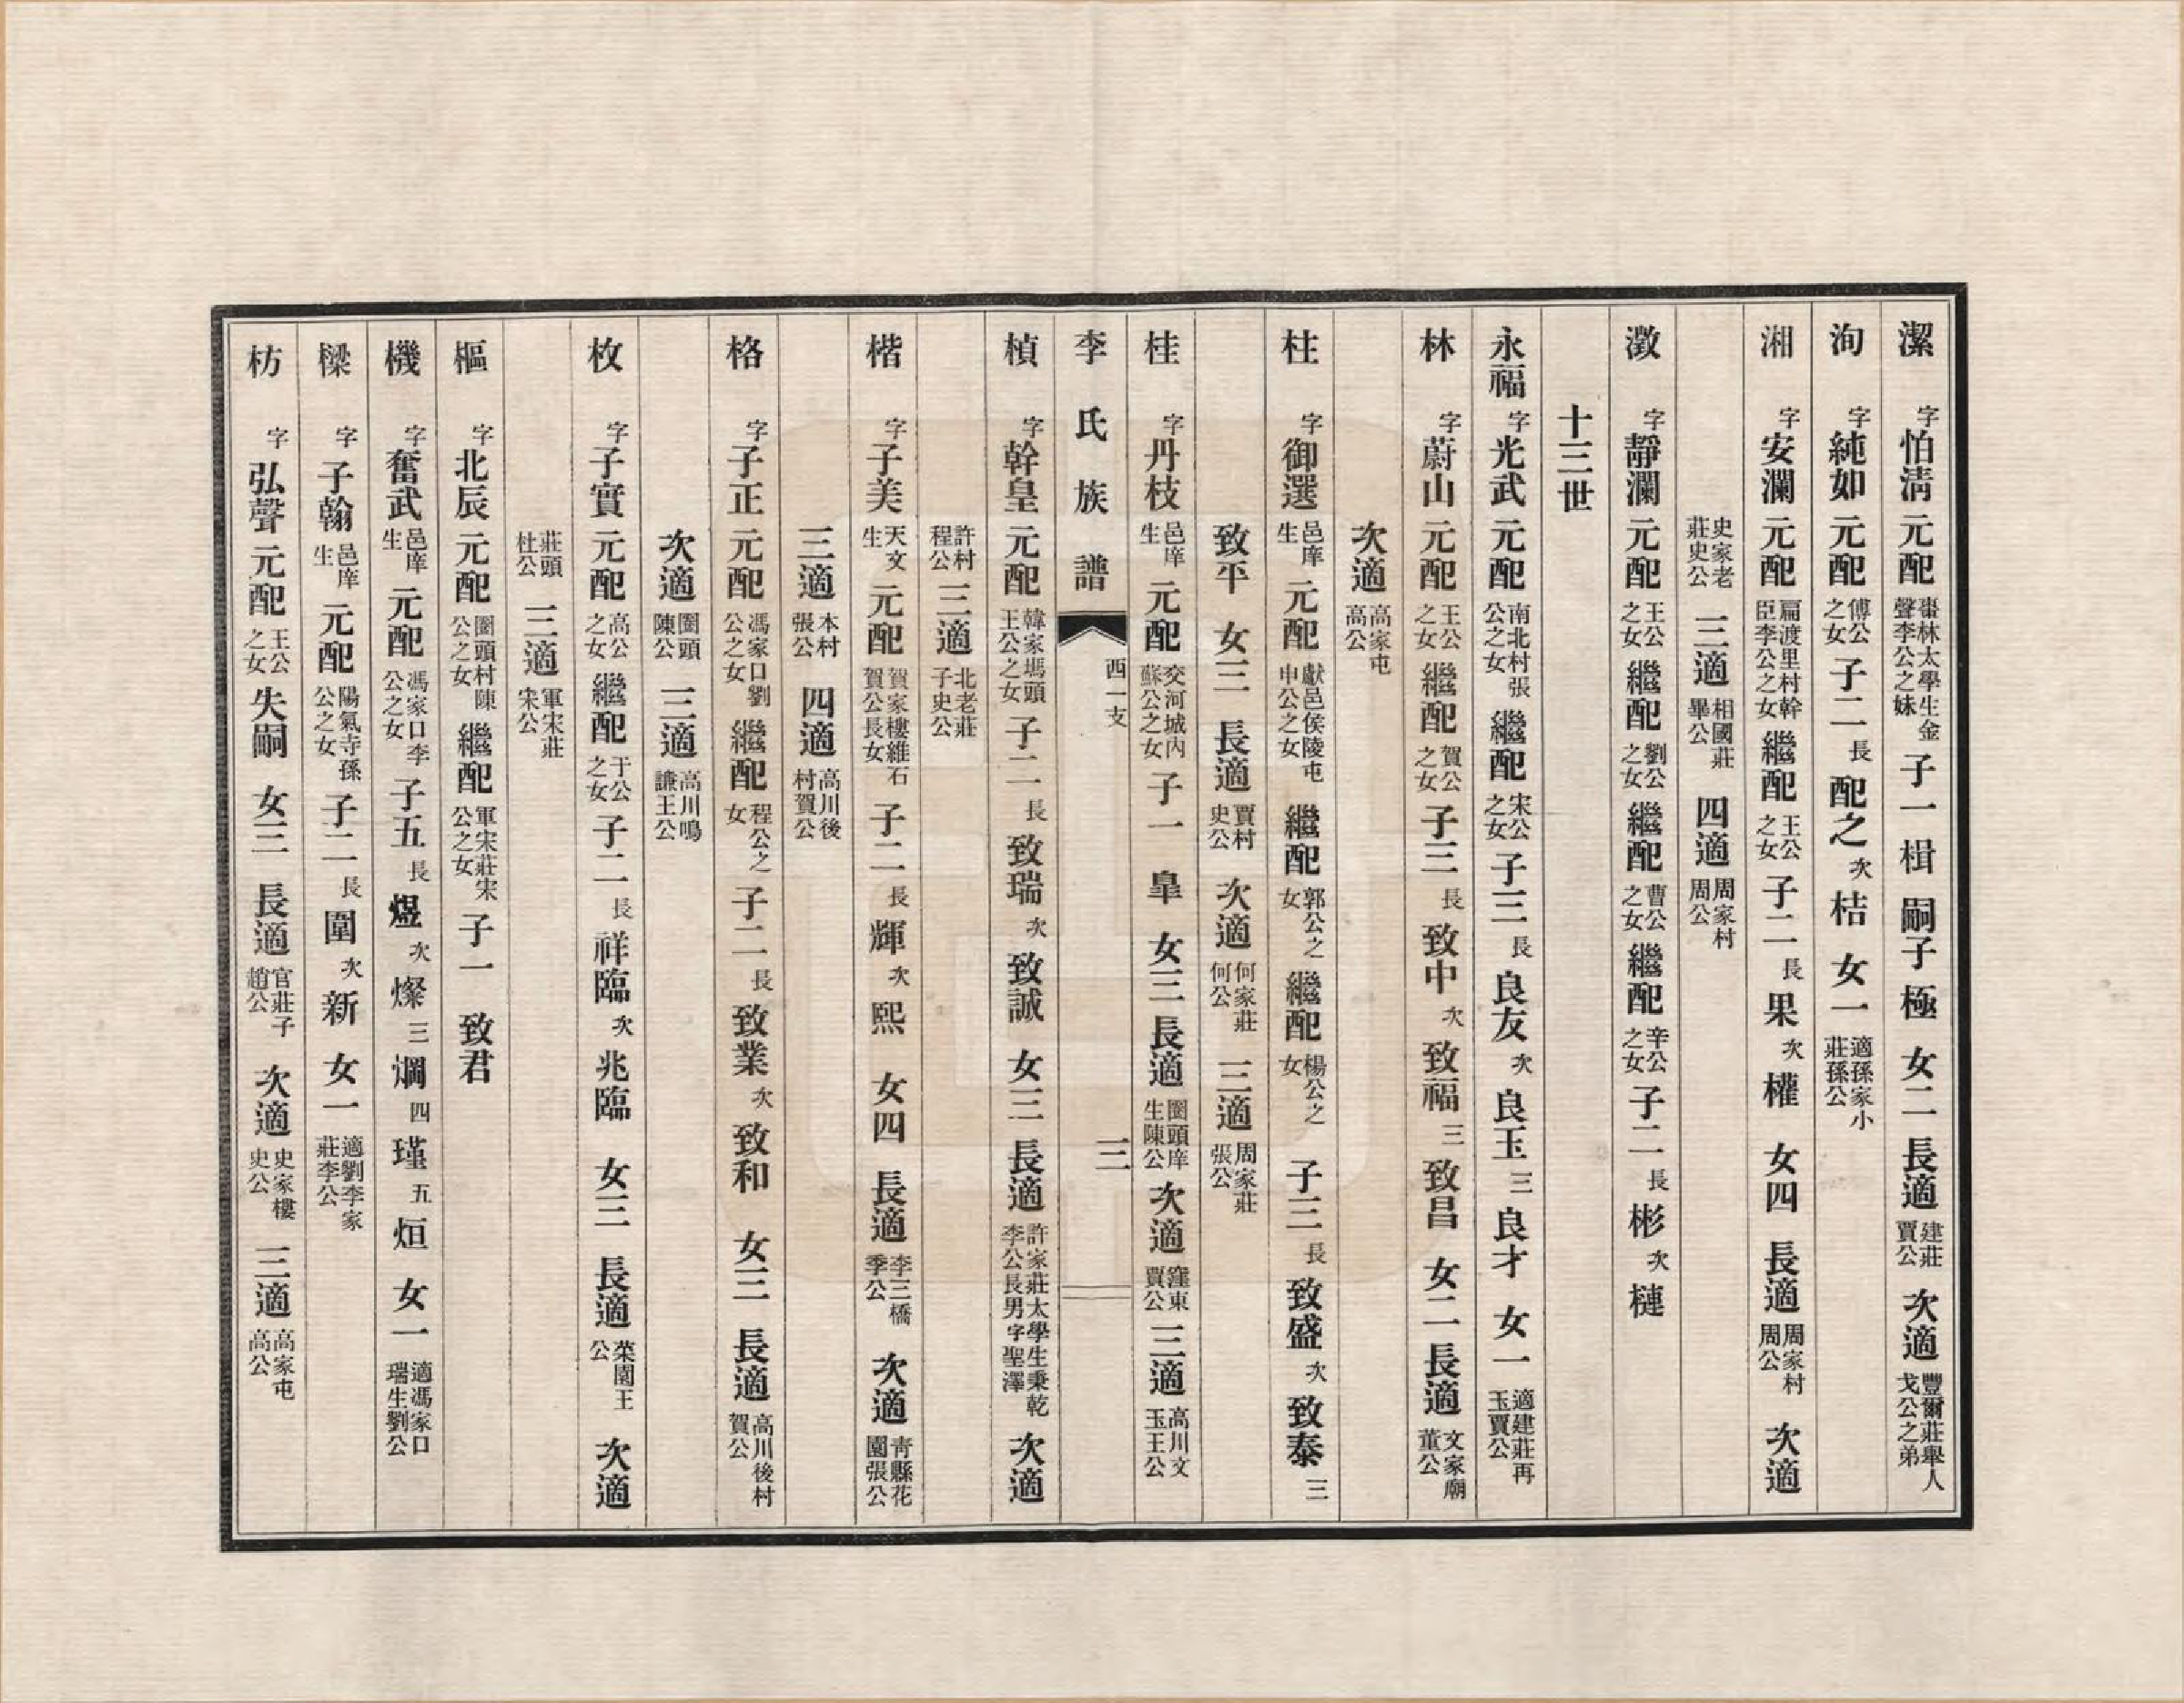 潔 字怕清 元配 棗林太學生金聲李公之妹 子一 楫 嗣子 極 女二 長適 建莊賈公 次適 豐爾莊舉人戈公之弟
洵 字純如 元配 傅公之女 子二 長配之 次桔 女一 適孫家小莊孫公
湘 字安瀾 元配 扁渡里村幹臣李公之女 繼配 王公之女 子二 長果 次權 女四 長適 周家村周公 次適
史家老莊史公 三適 相國莊畢公 四適 周家村周公
澂 字靜瀾 元配 王公之女 繼配 劉公之女 繼配 曹公之女 繼配 辛公之女 子二 長彬 次槤
十三世
永福 字光武 元配 南北村張公之女 繼配 宋公之女 子三 長良友 次良玉 三良才 女一 適建莊再玉賈公
林 字蔚山 元配 王公之女 繼配 賀公之女 子三 長致中 次致福 三致昌 女二 長適 文家廟董公
次適 高家屯高公
柱 字御選 邑庠生 元配 獻邑侯陵屯申公之女 繼配 郭公之女 繼配 楊公之女 子三 長致盛 次致泰 三
致平 女三 長適 賈村史公 次適 何家莊何公 三適 周家莊張公
桂 字丹枝 邑庠生 元配 交河城內蘇公之女 子一 臯 女三 長適 圈頭庠生陳公 次適 窪東賈公 三適 高川文玉王公
李氏族譜 西一支 三
楨 字幹皇 元配 韓家塢頭王公之女 子二 長致瑞 次致誠 女三 長適 許家莊太學生秉乾李公長男字聖澤 次適
許村程公 三適 北老莊子史公
楷 字子美 天文生 元配 賀家樓維石賀公長女 子二 長輝 次熙 女四 長適 李三橋季公 次適 青縣花園張公
三適 本村張公 四適 高川後村賀公
格 字子正 元配 馮家口劉公之女 繼配 程公之女 子二 長致業 次致和 女三 長適 高川後村賀公
次適 圈頭陳公 三適 高川鳴謙王公
枚 字子實 元配 高公之女 繼配 于公之女 子二 長祥臨 次兆臨 女三 長適 菜園王公 次適
莊頭杜公 三適 軍宋莊宋公
樞 字北辰 元配 圈頭村陳公之女 繼配 軍宋莊宋公之女 子一 致君
機 字奮武 邑庠生 元配 馮家口李公之女 子五 長煜 次燦 三焵 四瑾 五烜 女一 適馮家口瑞生劉公
樑 字子翰 邑庠生 元配 陽氣寺孫公之女 子二 長圍 次新 女一 適劉李家莊李公
枋 字弘聲 元配 王公之女 失嗣 女三 長適 官莊子趙公 次適 史家樓史公 三適 高家屯高公